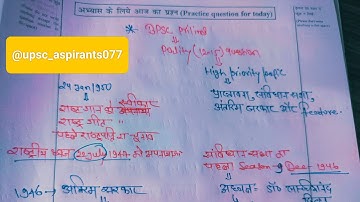 अभ्यास के लिये आज का प्रश्न (Practice question for today)
@upsc_aspirants077
UPSC prelims
Polity (12 marks) question
High priority topic
प्रस्तावना, संविधान सभा,
अंतरिम सरकार और feature.
24 Jan 1950
राष्ट्र गान को स्वीकार
राष्ट्र गीत "
पहले राष्ट्रपति का चुनाव
राष्ट्रीय ध्वज 22 July 1947 को अपनाया
संविधान सभा का
पहला Season 9 Dec 1946
1946 → अंतरिम सरकार
अध्यक्ष: डॉ सच्चिदानंद
सिन्हा